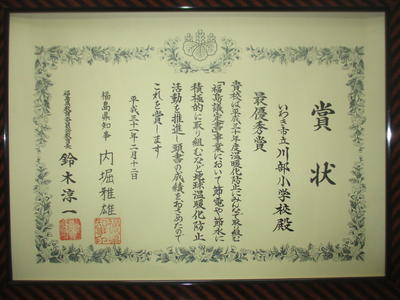 賞状
いわき市立川部小学校殿
最優秀賞
貴校は平成三十年度温暖化防止にみんなで取り組む
「福島議定書」事業において節電や節水に
積極的に取り組むなど地球温暖化防止
活動を推進し頭書の成績をおさめたので
これを賞します
平成三十一年二月十二日
福島県知事 内堀雅雄
鈴木淳一